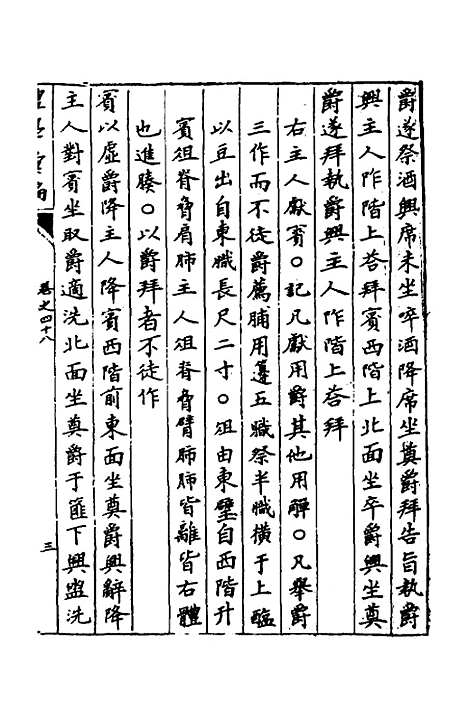 爵遂祭酒興席末坐啐酒降席坐奠爵拜告旨執爵
興主人阼階上荅拜賓西階上北面坐卒爵興坐奠
爵遂拜執爵興主人阼階上荅拜
右主人獻賓○記凡獻用爵其他用觶○凡舉爵
三作而不徒爵薦脯用籩五軄祭半軄橫于上醢
以豆出自東軄長尺二寸○俎由東壁自西階升
賓俎脊脅肩肺主人俎脊脅臂肺肺皆離皆右體
也進腠○以爵拜者不徒作
賓以虛爵降主人降賓西階前東面坐奠爵興辭降
主人對賓坐取爵適洗北面坐奠爵于篚下興盥洗
卷之四十八
三